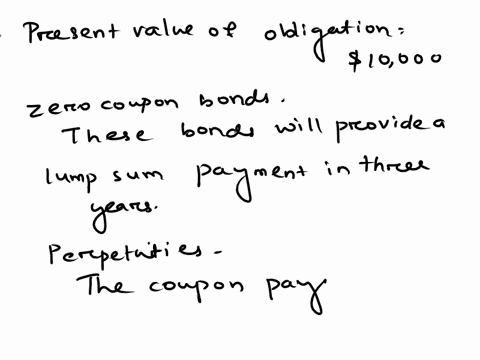 Present value of obligation:
$10,000
zero coupon bonds.
These bonds will provide a
lump sum payment in three
years.
Perpetuities -
The coupon pay